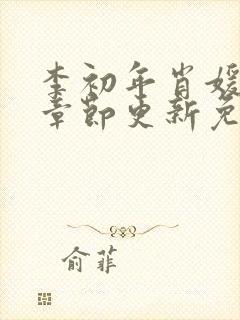 李初年肖媛
章节更新免
俞菲